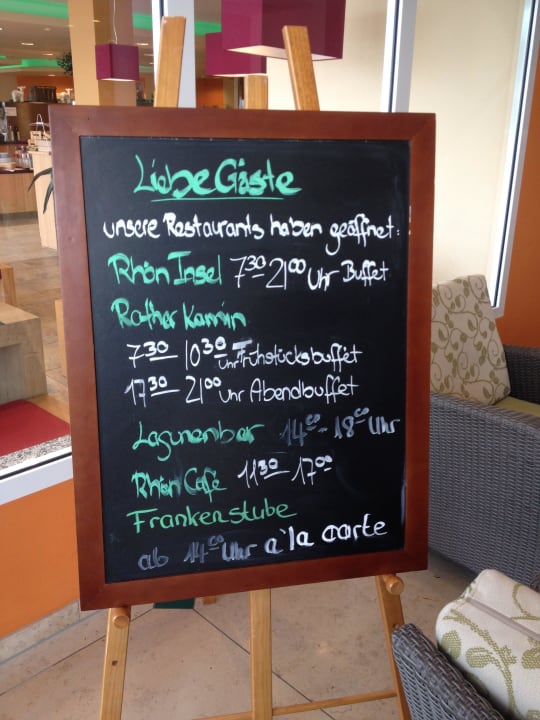 Liebe Gäste
unsere Restaurants haben geöffnet:
Rhön Insel 7³⁰ 21⁰⁰ Uhr Buffet
Rother Kamin
7³⁰ - 10³⁰ Uhr Frühstücksbuffet
17³⁰ - 21⁰⁰ Uhr Abendbuffet
Lagunenbar 14⁰⁰ - 18⁰⁰ Uhr
Rhön Café 11³⁰ - 17⁰⁰
Frankenstube
ab 14⁰⁰ Uhr a`la carte